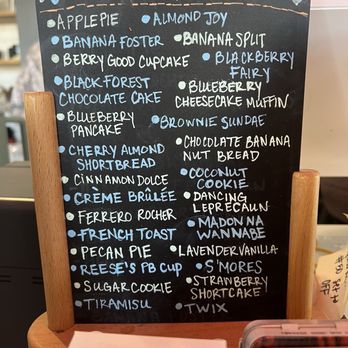 • APPLE PIE
• ALMOND JOY
• BANANA FOSTER
• BANANA SPLIT
• BERRY GOOD CUPCAKE
• BLACKBERRY
FAIRY
• BLACK FOREST
CHOCOLATE CAKE
• BLUEBERRY
CHEESECAKE MUFFIN
• BLUEBERRY
PANCAKE
• BROWNIE SUNDAE
• CHERRY ALMOND
SHORTBREAD
• CHOCOLATE BANANA
NUT BREAD
• CINNAMON DOLCE
• COCONUT
COOKIE
• CRÈME BRÛLÉE
• DANCING
LEPRECAUN
• FERRERO ROCHER
• MADONNA
WANNABE
• FRENCH TOAST
• PECAN PIE
• LAVENDER VANILLA
• REESE'S PB CUP
• S'MORES
• SUGAR COOKIE
• STRAWBERRY
SHORTCAKE
• TIRAMISU
• TWIX